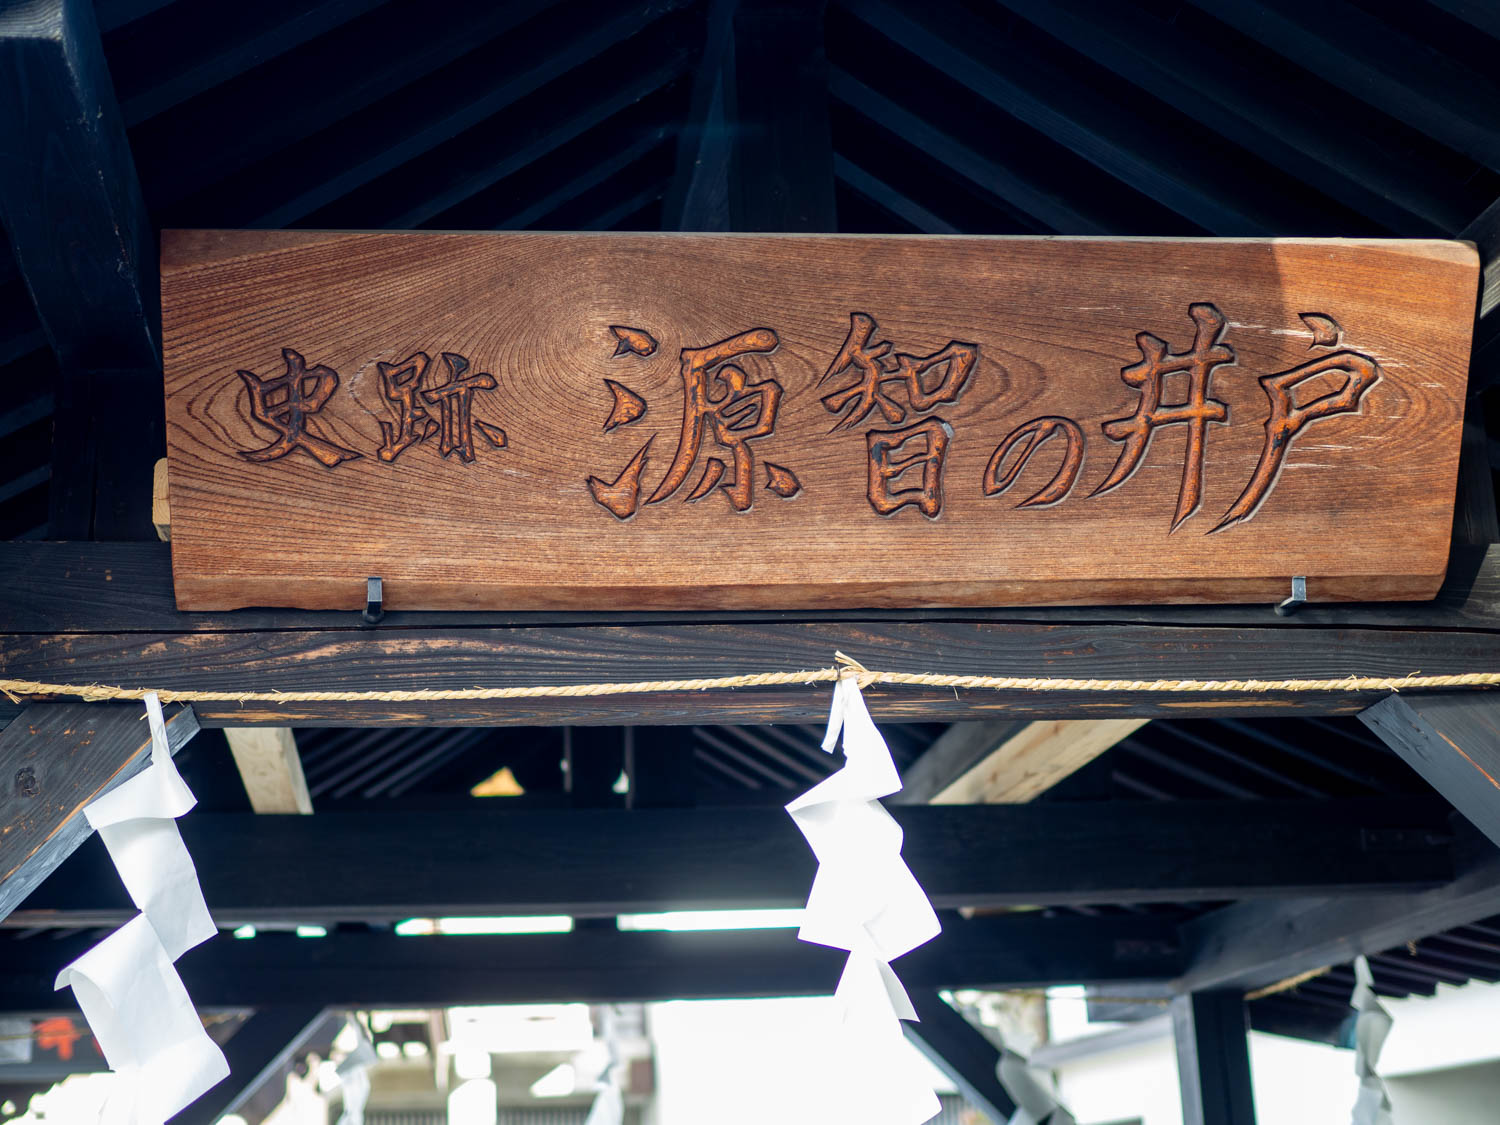 史跡 源智の井戸